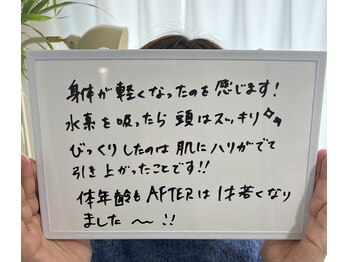 身体が軽くなったのを感じます!
水素を吸ったら頭はスッキリ
びっくりしたのは肌にハリがでて
引き上がったことです!!
体年齢もAFTERは1才若くなり
ました〜!!